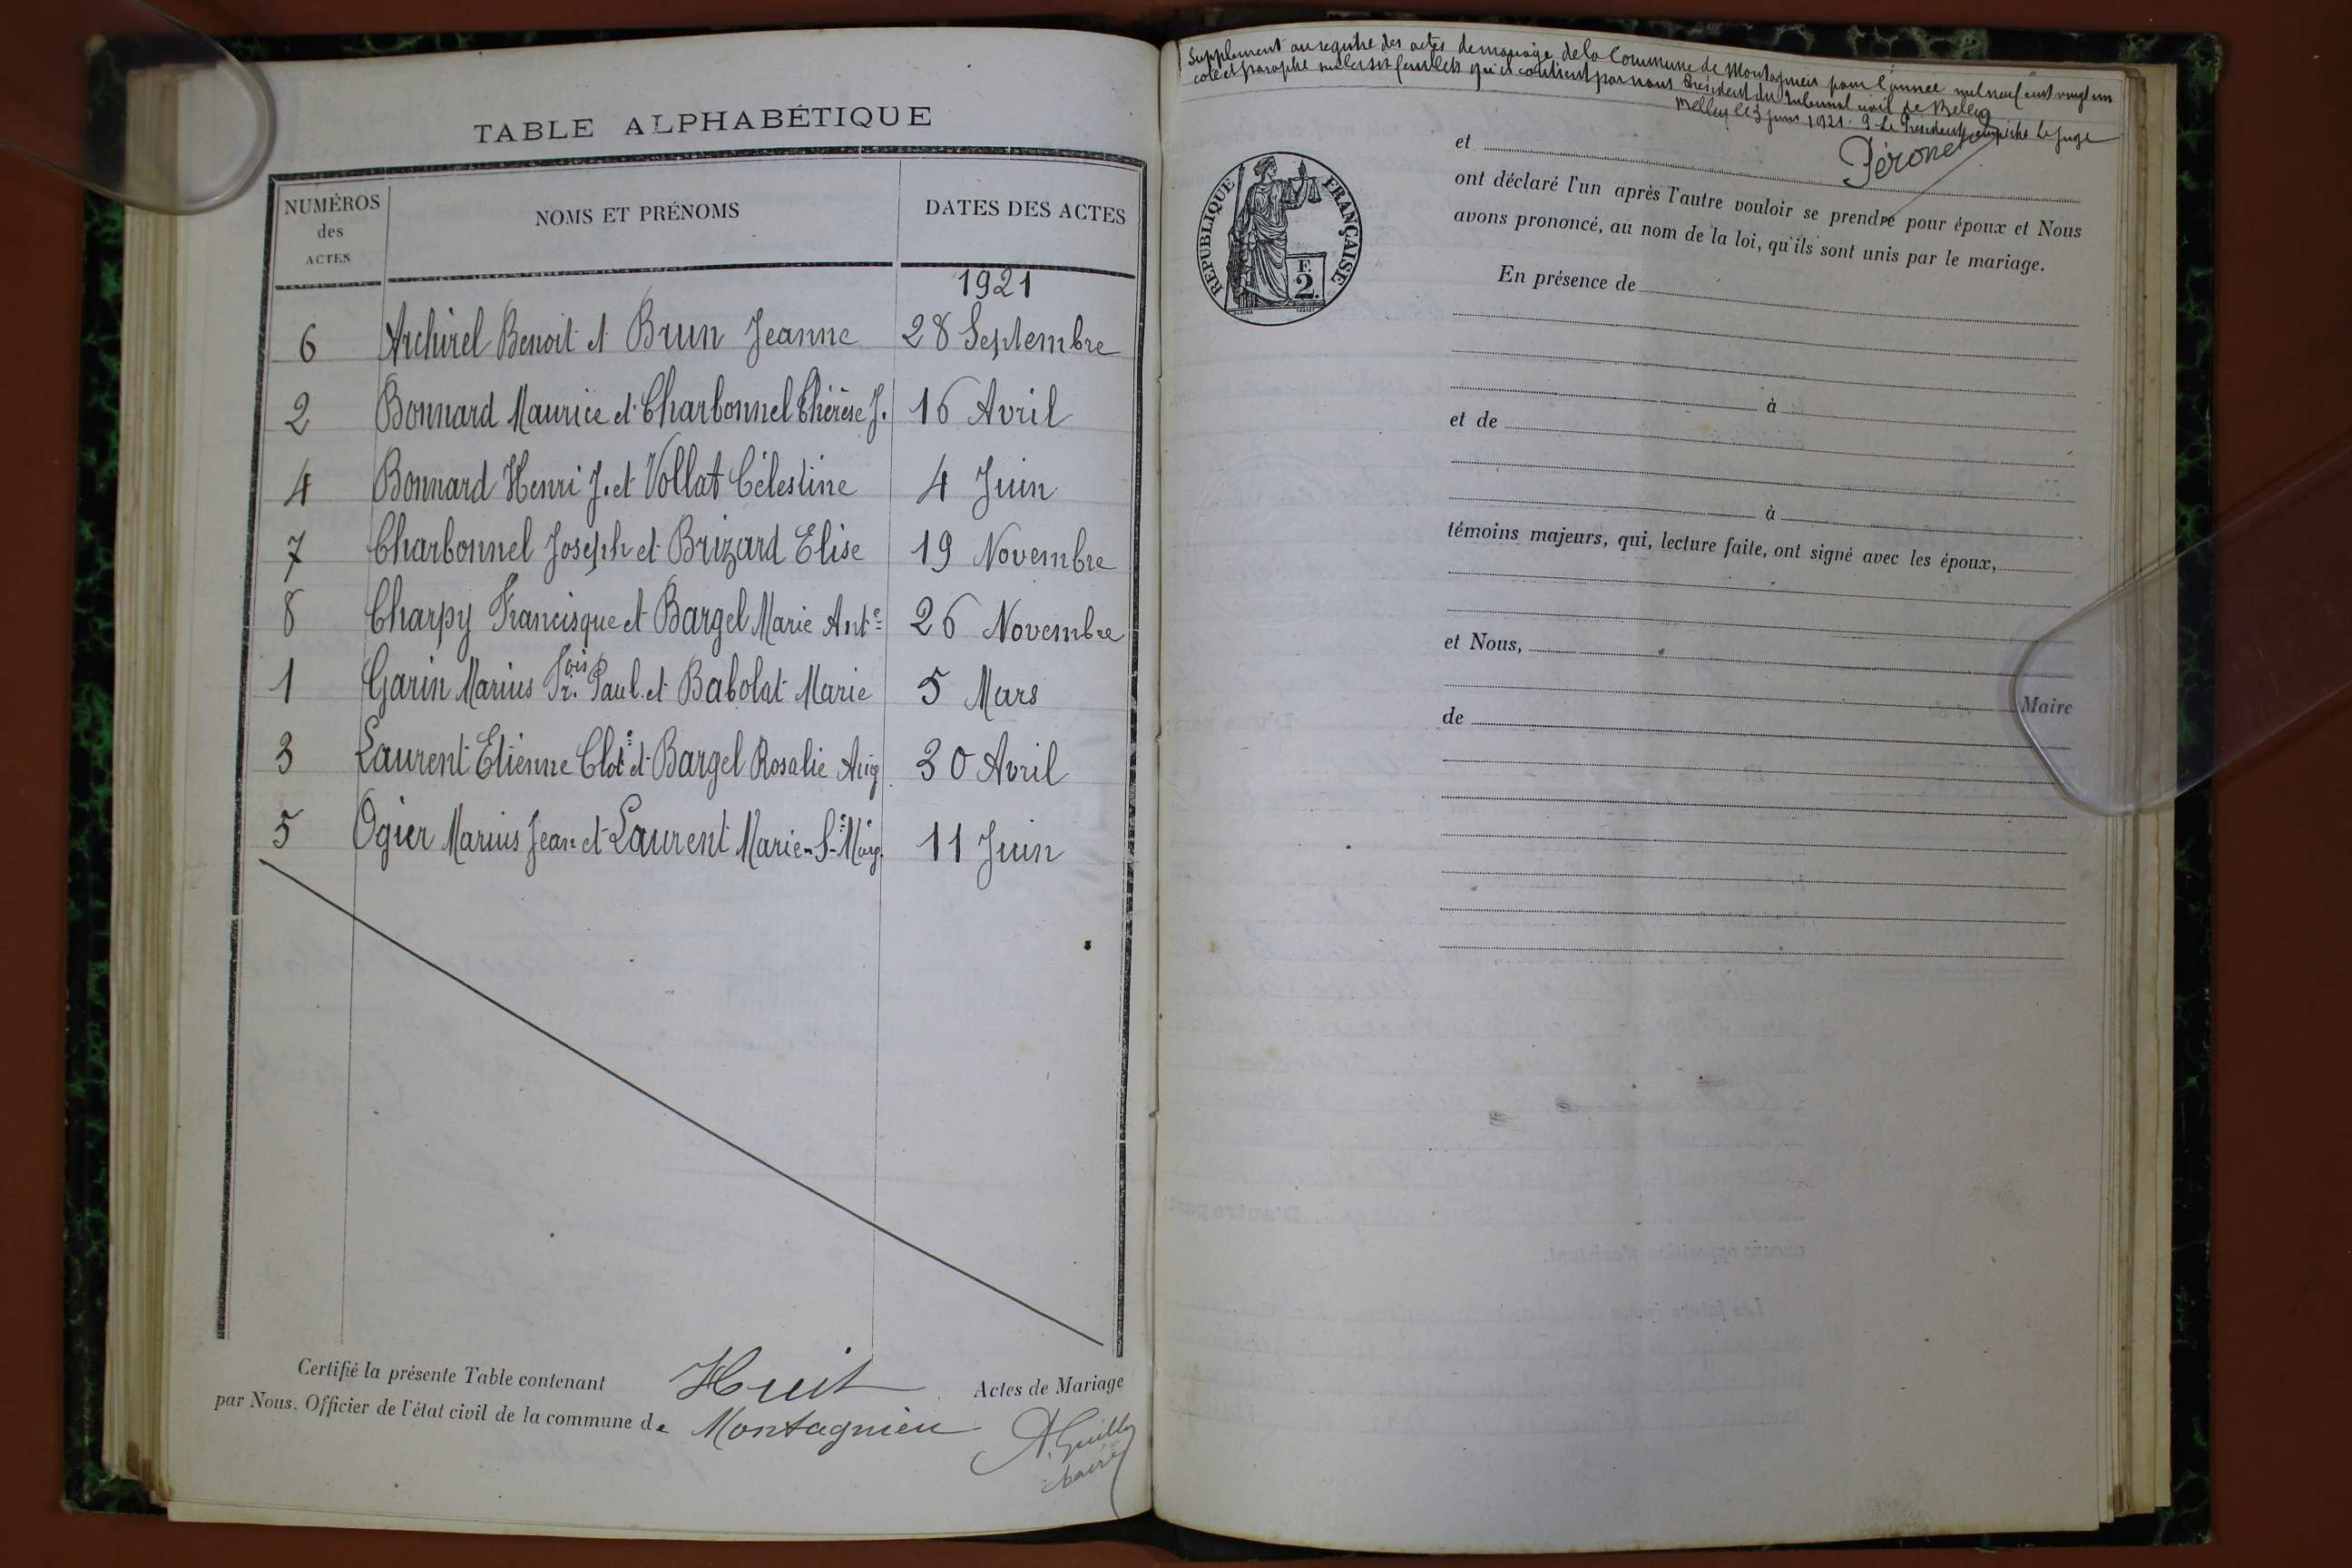 TABLE ALPHABÉTIQUE
NUMÉROS des ACTES
NOMS ET PRÉNOMS
DATES DES ACTES
1921
6 Archirel Benoit et Brun Jeanne 28 Septembre
2 Bonnard Maurice et Charbonnel Thérèse J. 16 Avril
4 Bonnard Henri J. et Vollat Célestine 4 Juin
7 Charbonnel Joseph et Brizard Elise 19 Novembre
8 Charpy Francisque et Bargel Marie Ant.e 26 Novembre
1 Garin Marius Fr.ois Paul et Babolat Marie 5 Mars
3 Laurent Etienne Clot et Bargel Rosalie Aug 30 Avril
5 Ogier Marius Jean et Laurent Marie-S-Marg. 11 Juin
Certifié la présente Table contenant Huit Actes de Mariage
par Nous, Officier de l'état civil de la commune de Montagnieu
A. Guilloz
Maire
Supplément au registre des actes de mariage de la Commune de Montagnieu pour l'année mil neuf cent vingt un
coté et paraphé sur les six feuillets qu'il contient par nous Président du Tribunal civil de Belley
Belley le 3 juin 1921. P. Le Président empêché Le Juge
Péronet
RÉPUBLIQUE FRANÇAISE
F.
2.
et
ont déclaré l'un après l'autre vouloir se prendre pour époux et Nous
avons prononcé, au nom de la loi, qu'ils sont unis par le mariage.
En présence de
à
et de
à
témoins majeurs, qui, lecture faite, ont signé avec les époux,
et Nous,
Maire
de